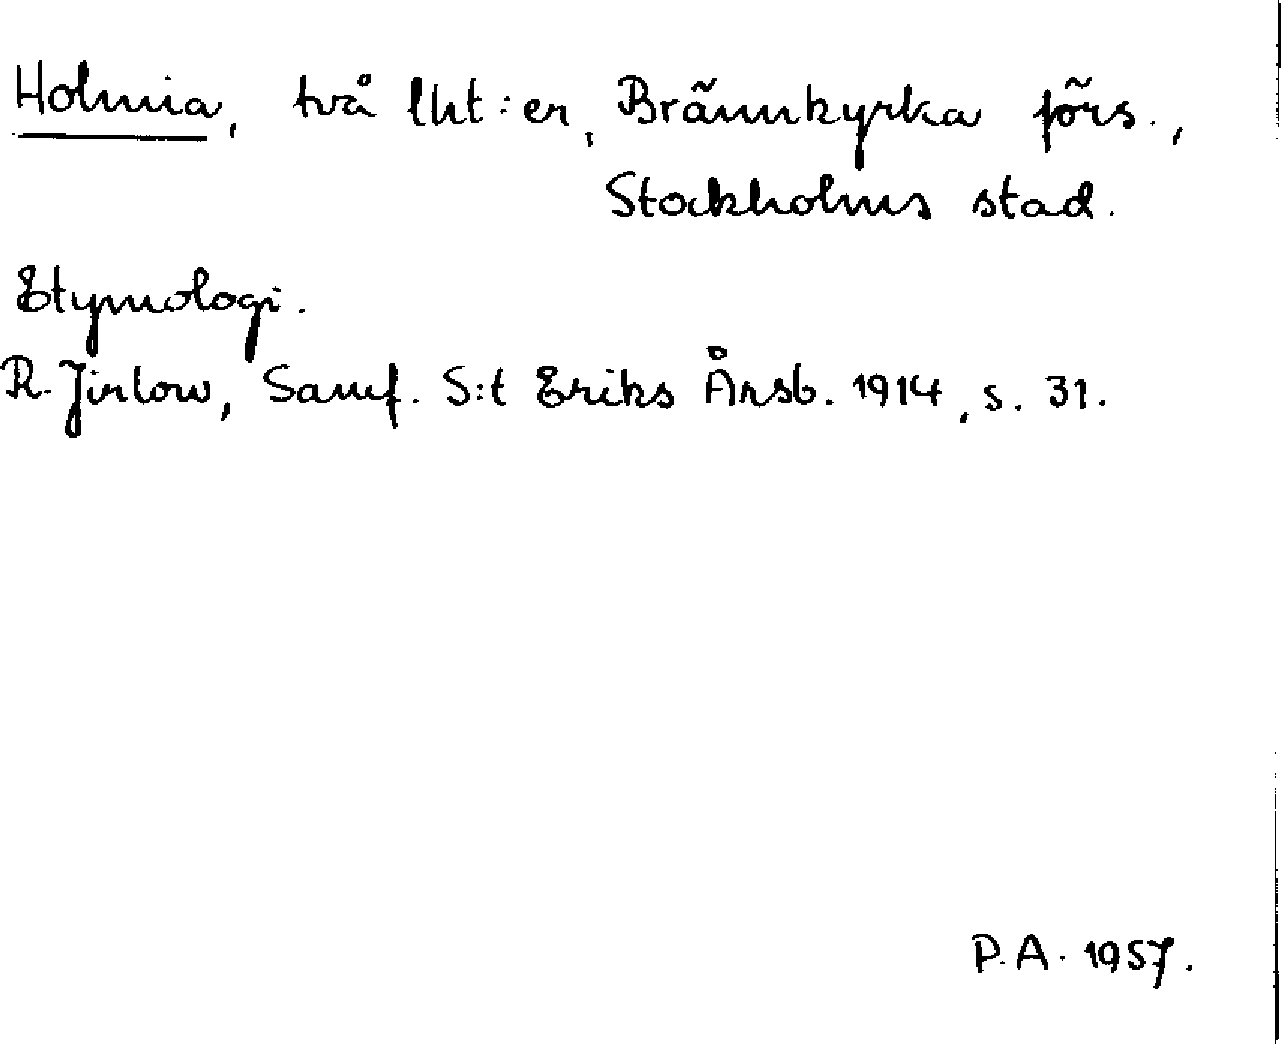 Holmia, två lht:er, Brännkyrka förs.,
Stockholms stad.
Etymologi.
R. Jirlow, Samf. S:t Eriks Årsb. 1914, s. 31.
P.A. 1957.